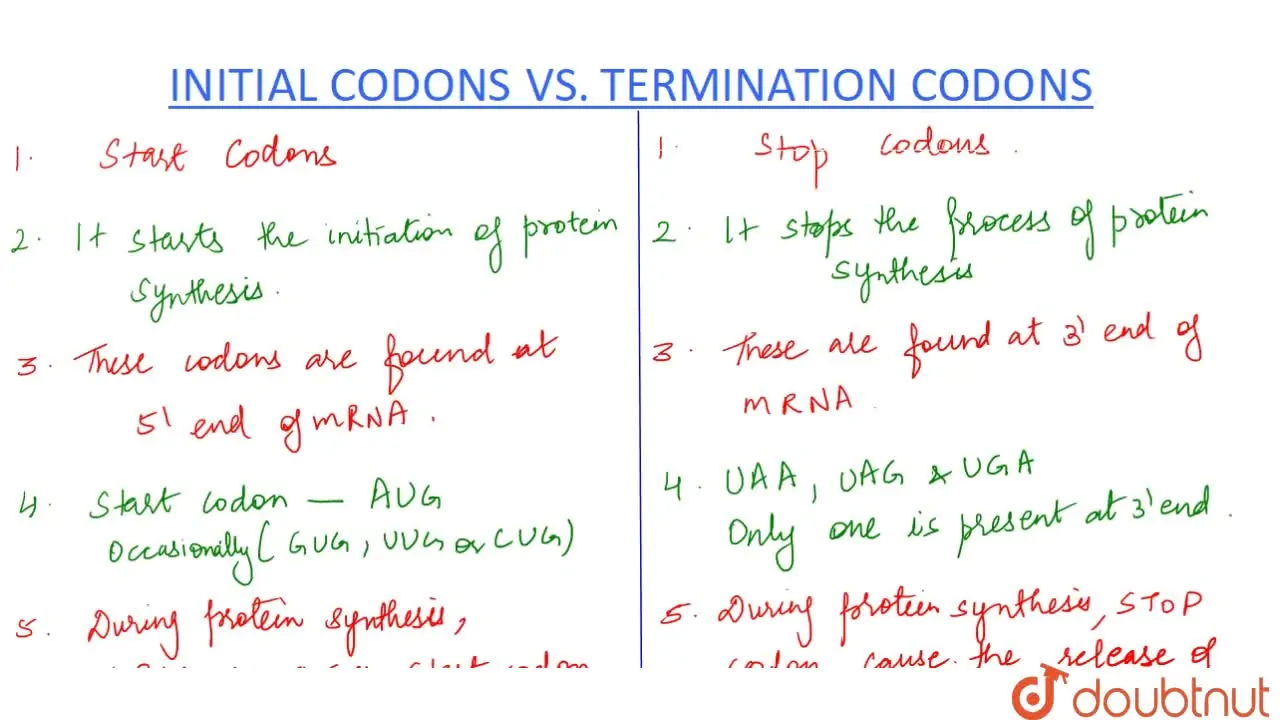 INITIAL CODONS VS. TERMINATION CODONS
1. Start Codons
2. It starts the initiation of protein
synthesis.
3. These codons are found at
5' end of mRNA.
4. Start codon — AUG
Occasionally (GUG, UUG or CUG)
5. During protein synthesis,
start codon
1. Stop codons.
2. It stops the process of protein
synthesis
3. These are found at 3' end of
mRNA
4. UAA, UAG & UGA
Only one is present at 3' end.
5. During protein synthesis, STOP
codon cause the release of
doubtnut